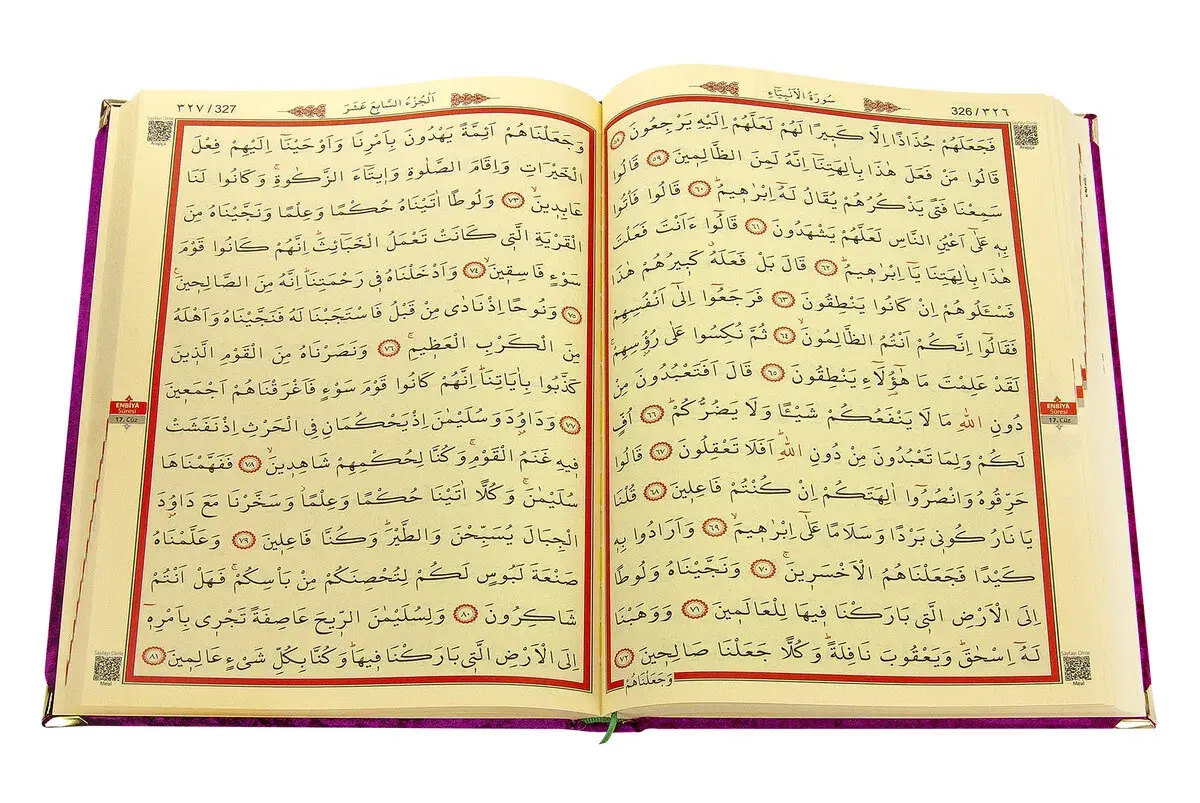 سُورَةُ الْاَنْبِيَٓاءِ
326 / ٣٢٦
Arapça
فَجَعَلَهُمْ جُذَاذًا اِلَّا كَب۪يرًا لَهُمْ لَعَلَّهُمْ اِلَيْهِ يَرْجِعُونَ ٥٨
قَالُوا مَنْ فَعَلَ هٰذَا بِاٰلِهَتِنَٓا اِنَّهُ لَمِنَ الظَّالِم۪ينَ ٥٩ قَالُوا
سَمِعْنَا فَتًى يَذْكُرُهُمْ يُقَالُ لَهُٓ اِبْرٰه۪يمُۜ ٦٠ قَالُوا فَأْتُوا
بِه۪ عَلٰٓى اَعْيُنِ النَّاسِ لَعَلَّهُمْ يَشْهَدُونَ ٦١ قَالُٓوا ءَاَنْتَ فَعَلْتَ
هٰذَا بِاٰلِهَتِنَا يَٓا اِبْرٰه۪يمُۜ ٦٢ قَالَ بَلْ فَعَلَهُۗ كَب۪يرُهُمْ هٰذَا
فَسْـَٔلُوهُمْ اِنْ كَانُوا يَنْطِقُونَ ٦٣ فَرَجَعُٓوا اِلٰٓى اَنْفُسِهِمْ
فَقَالُٓوا اِنَّكُمْ اَنْتُمُ الظَّالِمُونَۙ ٦٤ ثُمَّ نُكِسُوا عَلٰى رُؤُ۫سِهِمْۚ
لَقَدْ عَلِمْتَ مَا هٰٓؤُ۬لَٓاءِ يَنْطِقُونَ ٦٥ قَالَ اَفَتَعْبُدُونَ مِنْ
دُونِ اللّٰهِ مَا لَا يَنْفَعُكُمْ شَيْـًٔا وَلَا يَضُرُّكُمْۜ ٦٦ اُفٍّ
لَكُمْ وَلِمَا تَعْبُدُونَ مِنْ دُونِ اللّٰهِۜ اَفَلَا تَعْقِلُونَ ٦٧ قَالُوا
حَرِّقُوهُ وَانْصُرُٓوا اٰلِهَتَكُمْ اِنْ كُنْتُمْ فَاعِل۪ينَ ٦٨ قُلْنَا
يَا نَارُ كُون۪ي بَرْدًا وَسَلَامًا عَلٰٓى اِبْرٰه۪يمَۙ ٦٩ وَاَرَادُوا بِه۪
كَيْدًا فَجَعَلْنَاهُمُ الْاَخْسَر۪ينَۚ ٧٠ وَنَجَّيْنَاهُ وَلُوطًا
اِلَى الْاَرْضِ الَّت۪ي بَارَكْنَا ف۪يهَا لِلْعَالَم۪ينَ ٧١ وَوَهَبْنَا
لَهُٓ اِسْحٰقَۜ وَيَعْقُوبَ نَافِلَةًۜ وَكُلًّا جَعَلْنَا صَالِح۪ينَ ٧٢
وَجَعَلْنَاهُمْ
ENBİYÂ
Sûresi
17. Cüz
Sayfayı Dinle
Meal
٣٢٧ / 327
اَلْجُزْءُ السَّابِعَ عَشَرَ
Sayfayı Dinle
Arapça
وَجَعَلْنَاهُمْ اَئِمَّةً يَهْدُونَ بِاَمْرِنَا وَاَوْحَيْنَٓا اِلَيْهِمْ فِعْلَ
الْخَيْرَاتِ وَاِقَامَ الصَّلٰوةِ وَا۪يتَٓاءَ الزَّكٰوةِۚ وَكَانُوا لَنَا
عَابِد۪ينَۙ ٧٣ وَلُوطًا اٰتَيْنَاهُ حُكْمًا وَعِلْمًا وَنَجَّيْنَاهُ مِنَ
الْقَرْيَةِ الَّت۪ي كَانَتْ تَعْمَلُ الْخَبَٓائِثَۜ اِنَّهُمْ كَانُوا قَوْمَ
سَوْءٍ فَاسِق۪ينَۙ ٧٤ وَاَدْخَلْنَاهُ ف۪ي رَحْمَتِنَاۜ اِنَّهُ مِنَ الصَّالِح۪ينَ۟
٧٥ وَنُوحًا اِذْ نَادٰى مِنْ قَبْلُ فَاسْتَجَبْنَا لَهُ فَنَجَّيْنَاهُ وَاَهْلَهُ
مِنَ الْكَرْبِ الْعَظ۪يمِۚ ٧٦ وَنَصَرْنَاهُ مِنَ الْقَوْمِ الَّذ۪ينَ
كَذَّبُوا بِاٰيَاتِنَاۜ اِنَّهُمْ كَانُوا قَوْمَ سَوْءٍ فَاَغْرَقْنَاهُمْ اَجْمَع۪ينَ
٧٧ وَدَاوُ۫دَ وَسُلَيْمٰنَ اِذْ يَحْكُمَانِ فِي الْحَرْثِ اِذْ نَفَشَتْ
ف۪يهِ غَنَمُ الْقَوْمِۚ وَكُنَّا لِحُكْمِهِمْ شَاهِد۪ينَۙ ٧٨ فَفَهَّمْنَاهَا
سُلَيْمٰنَۚ وَكُلًّا اٰتَيْنَا حُكْمًا وَعِلْمًاۘ وَسَخَّرْنَا مَعَ دَاوُ۫دَ
الْجِبَالَ يُسَبِّحْنَ وَالطَّيْرَۜ وَكُنَّا فَاعِل۪ينَ ٧٩ وَعَلَّمْنَاهُ
صَنْعَةَ لَبُوسٍ لَكُمْ لِتُحْصِنَكُمْ مِنْ بَأْسِكُمْۚ فَهَلْ اَنْتُمْ
شَاكِرُونَ ٨٠ وَلِسُلَيْمٰنَ الرّ۪يحَ عَاصِفَةً تَجْر۪ي بِاَمْرِه۪ٓ
اِلَى الْاَرْضِ الَّت۪ي بَارَكْنَا ف۪يهَاۜ وَكُنَّا بِكُلِّ شَيْءٍ عَالِم۪ينَ ٨١
ENBİYÂ
Sûresi
17. Cüz
Sayfayı Dinle
Meal